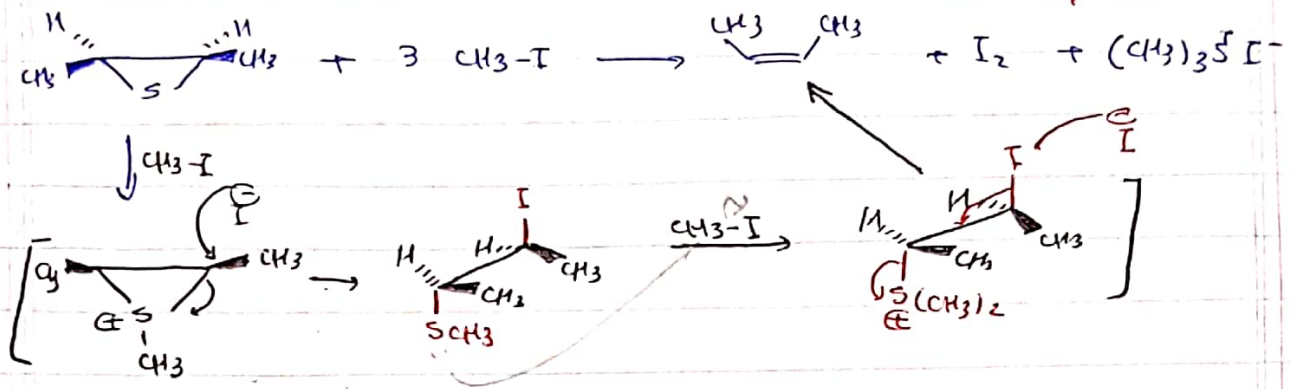 H H
CH3 S CH3 + 3 CH3-I ⟶ CH3 CH3 + I2 + (CH3)3S⁺ I⁻
↓ CH3-I
⊖ I
CH3 S ⊕ CH3 CH3 ⟶ H H I CH3 CH3 SCH3 CH3-I ⟶ H H I CH3 CH3 S(CH3)2 ⊕ ⊖ I